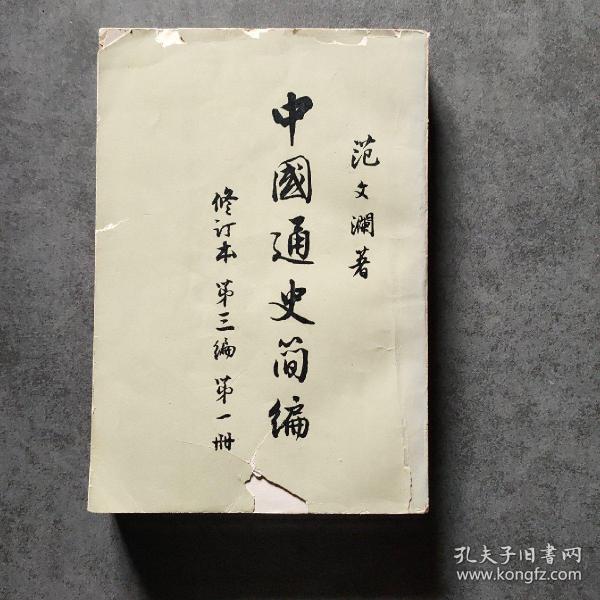 范文瀾著
中國通史简编
修订本 第三编 第一册
孔夫子旧書网
www.kongfz.com